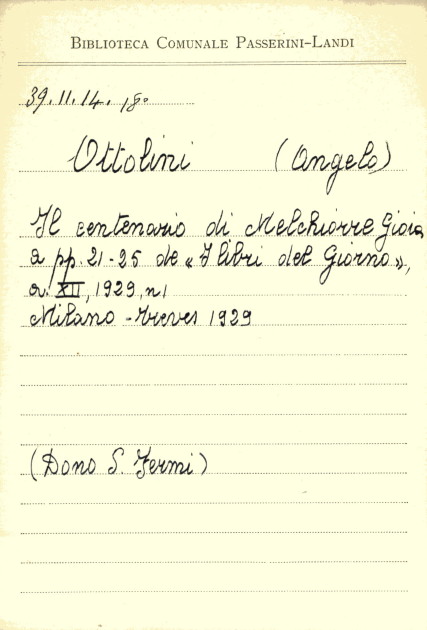 BIBLIOTECA COMUNALE PASSERINI-LANDI
39.II.14.18°
Ottolini (Angelo)
Il centenario di Melchiorre Gioia
a pp. 21-25 de « I libri del Giorno »,
a. XII, 1929, n 1
Milano - Treves 1929
(Dono S. Fermi)